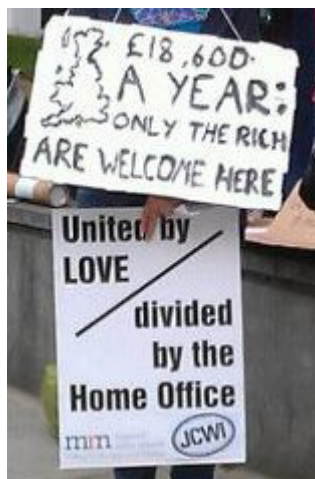 £18,600
A YEAR:
ONLY THE RICH
ARE WELCOME HERE
United by
LOVE
divided
by the
Home Office
mrn
JCWI